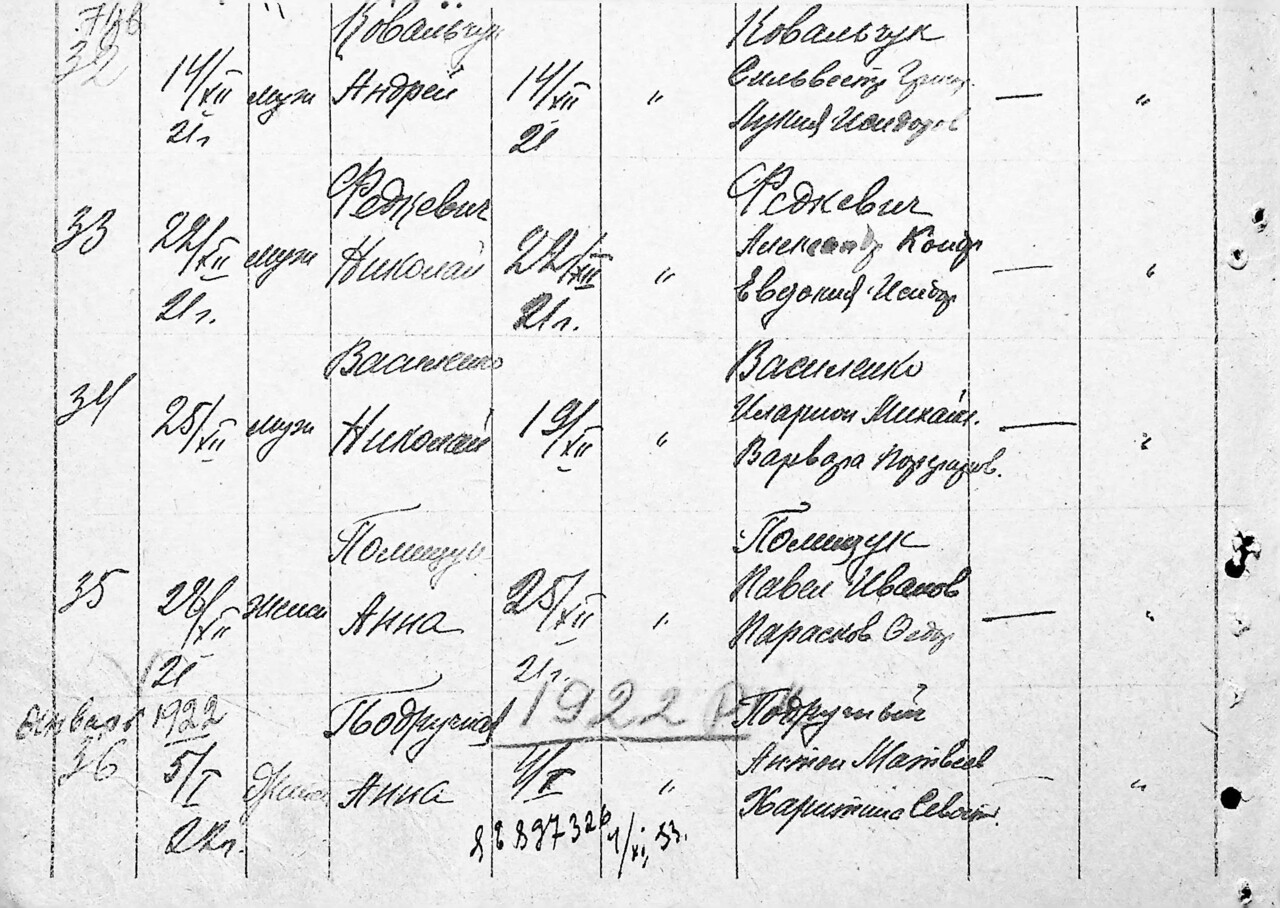 32
14/XII 21г муж Ковальчук Андрей 14/XII 21 " Ковальчук
Сильвестр Григ. — "
Лукия Исидоров
33 22/XII 21г. муж Федкевич Николай 22/XII 21г. " Федкевич
Александр Кондр — "
Евдокия Исидор
34 25/XII муж Василенко Николай 19/XII " Василенко
Иларион Михайл. — "
Варвара
35 28/XII 21 женс Полищук Анна 25/XII 21г. " Полищук
Павел Иванов — "
Парасков Федор
1922
Январь 1922
36 5/I 22г. женс Подручная Анна 4/I " Подручный
Антон Матвеев — "
Харитина Севаст.